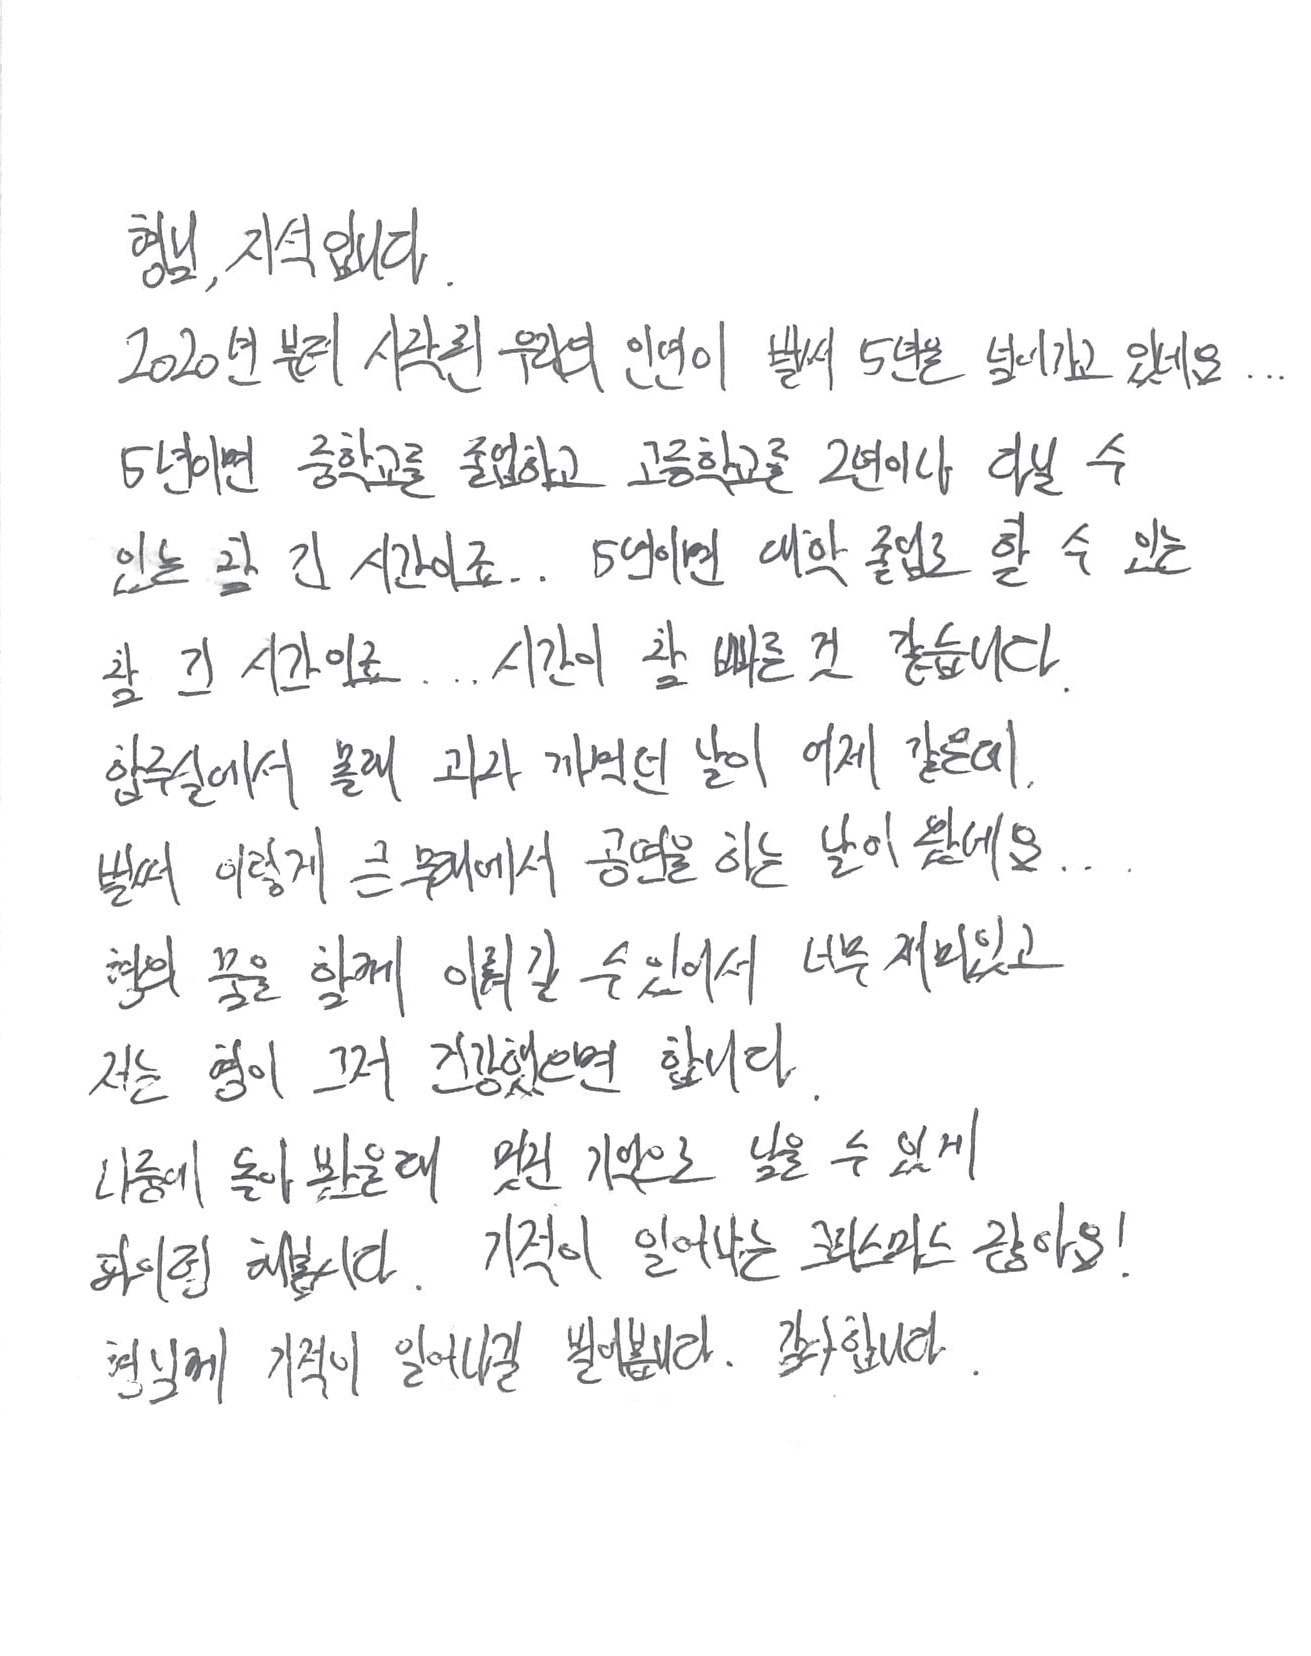 형님, 지석입니다.
2020년 부터 시작된 우리의 인연이 벌써 5년을 넘어가고 있네요...
5년이면 중학교를 졸업하고 고등학교를 2년이나 다닐 수
있는 참 긴 시간이죠... 5년이면 대학 졸업도 할 수 있는
참 긴 시간이죠.... 시간이 참 빠른 것 같습니다.
합주실에서 몰래 과자 까먹던 날이 어제 같은데,
벌써 이렇게 큰 무대에서 공연을 하는 날이 왔네요...
형의 꿈을 함께 이뤄갈 수 있어서 너무 재미있고
저는 형이 그저 건강했으면 합니다.
나중에 돌아 봤을때 멋진 기억으로 남을 수 있게
파이팅 해봅시다. 기적이 일어나는 크리스마스 잖아요!
형님께 기적이 일어나길 빌어봅니다. 감사합니다.